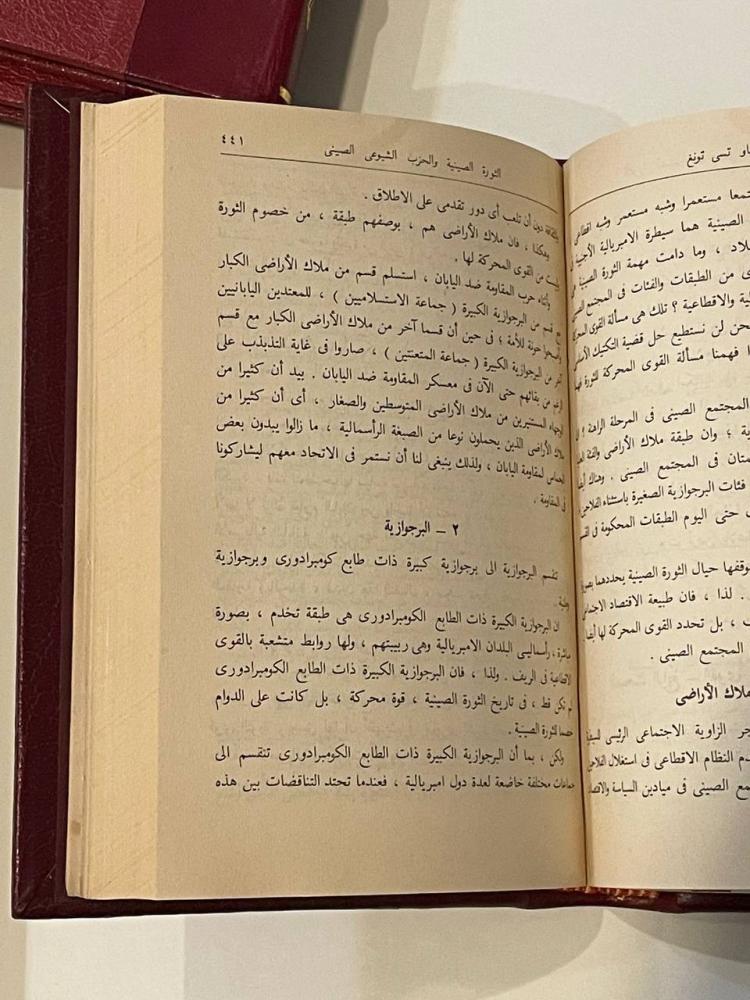 او تسى تونغ
تمعا مستعمرا وشبه مستعمر وشبه اقطاعى
الصينية هما سيطرة الامبريالية الأجنبية
لاد ، وما دامت مهمة الثورة الصينية
ى من الطبقات والفئات فى المجتمع الصينى
لية والاقطاعية ؟ تلك هى مسألة القوى المحركة
حن لن نستطيع حل قضية التكتيك الأساسى
ا فهمنا مسألة القوى المحركة للثورة فهما
المجتمع الصينى فى المرحلة الراهنة ؟
ية ؛ وان طبقة ملاك الأراضى والفئة
ستان فى المجتمع الصينى . وهناك أيضا
فئات البرجوازية الصغيرة باستثناء الفلاحين
حتى اليوم الطبقات المحكومة فى القسم
وقفها حيال الثورة الصينية يحددهما بصورة
. لذا ، فان طبيعة الاقتصاد الاجتماعى
ف ، بل تحدد القوى المحركة لها أيضا
المجتمع الصينى .
ملاك الأراضى
جر الزاوية الاجتماعى الرئيسى للسيطرة
دم النظام الاقطاعى فى استغلال الفلاحين
مع الصينى فى ميادين السياسة والاقتصاد
الثورة الصينية والحزب الشيوعى الصينى ٤٤١
والثقافة دون أن تلعب أى دور تقدمى على الاطلاق .
وهكذا ، فان ملاك الأراضى هم ، بوصفهم طبقة ، من خصوم الثورة
وليست من القوى المحركة لها .
وأثناء حرب المقاومة ضد اليابان ، استسلم قسم من ملاك الأراضى الكبار
مع قسم من البرجوازية الكبيرة ( جماعة الاستسلاميين ) ، للمعتدين اليابانيين
وأصبحوا خونة للأمة ؛ فى حين أن قسما آخر من ملاك الأراضى الكبار مع قسم
آخر من البرجوازية الكبيرة ( جماعة المتعنتين ) ، صاروا فى غاية التذبذب على
الرغم من بقائهم حتى الآن فى معسكر المقاومة ضد اليابان . بيد أن كثيرا من
الوجهاء المستنيرين من ملاك الأراضى المتوسطين والصغار ، أى أن كثيرا من
ملاك الأراضى الذين يحملون نوعا من الصبغة الرأسمالية ، ما زالوا يبدون بعض
الحماس لمقاومة اليابان ، ولذلك ينبغى لنا أن نستمر فى الاتحاد معهم ليشاركونا
فى المقاومة .
٢ – البرجوازية
تنقسم البرجوازية الى برجوازية كبيرة ذات طابع كومبرادورى وبرجوازية
وطنية .
ان البرجوازية الكبيرة ذات الطابع الكومبرادورى هى طبقة تخدم ، بصورة
مباشرة ، رأسماليى البلدان الامبريالية وهى ربيبتهم ، ولها روابط متشعبة بالقوى
الاقطاعية فى الريف . ولذا ، فان البرجوازية الكبيرة ذات الطابع الكومبرادورى
لم تكن قط ، فى تاريخ الثورة الصينية ، قوة محركة ، بل كانت على الدوام
خصما للثورة الصينية .
ولكن ، بما أن البرجوازية الكبيرة ذات الطابع الكومبرادورى تنقسم الى
جماعات مختلفة خاضعة لعدة دول امبريالية ، فعندما تحتد التناقضات بين هذه